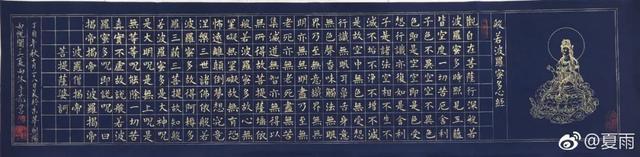 般若波羅蜜多心經
觀自在菩薩行深般若
波羅蜜多時照見五蘊
皆空度一切苦厄舍利
子色不異空空不異色
色即是空空即是色受
想行識亦復如是舍利
子是諸法空相不生不
滅不垢不淨不增不減
是故空中無色無受想
行識無眼耳鼻舌身意
無色聲香味觸法無眼
界乃至無意識界無無
明亦無無明盡乃至無
老死亦無老死盡無苦
集滅道無智亦無得以
無所得故菩提薩埵依
般若波羅蜜多故心無
罣礙無罣礙故無有恐
怖遠離顛倒夢想究竟
涅槃三世諸佛依般若
波羅蜜多故得阿耨多
羅三藐三菩提故知般
若波羅蜜多是大神呪
是大明呪是無上呪是
無等等呪能除一切苦
真實不虛故說般若波
羅蜜多呪即說呪曰
揭帝揭帝 波羅揭帝
波羅僧揭帝
菩提薩婆訶
@夏雨